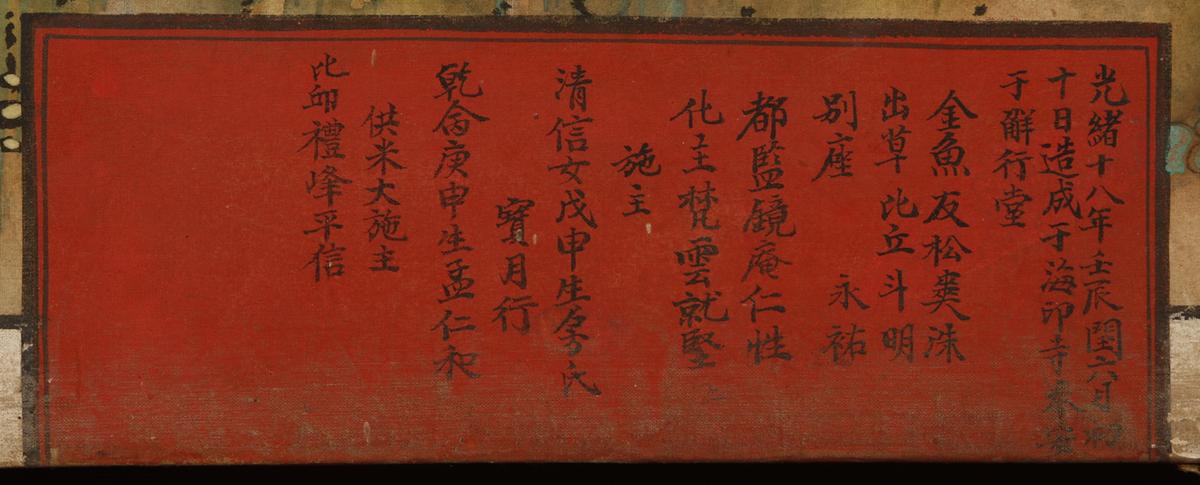 光緖十八年壬辰閏六月初
十日造成于海印寺奉安
于解行堂
金魚友松爽洙
出草比丘斗明
別座 永祐
都監鏡庵仁性
化主梵雲就堅
施主
淸信女戊申生李氏
寶月行
乾命庚申生孟仁和
供米大施主
比邱禮峰平信